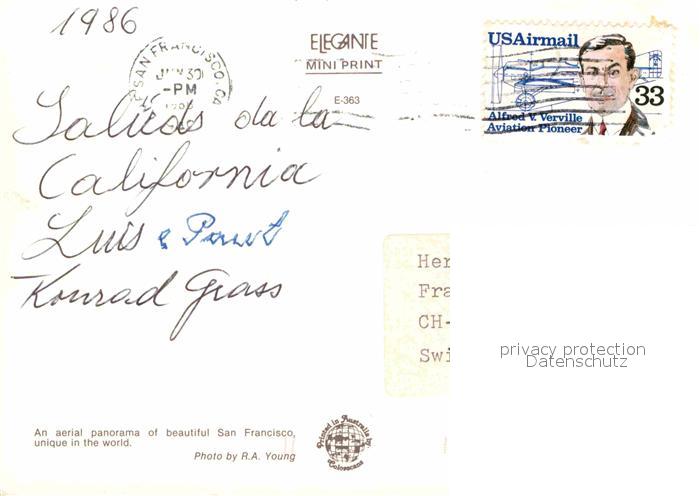 1986
SAN FRANCISCO, CA
JUN 30
PM
ELEGANTE
MINI PRINT
E-363
USAirmail
33
Alfred V. Verville
Aviation Pioneer
Salidas da la
California
Luis e
Konrad Grass
Her
Fra
CH-
Swi
privacy protection
Datenschutz
An aerial panorama of beautiful San Francisco,
unique in the world.
Photo by R.A. Young
Printed in Australia by
Colorscans